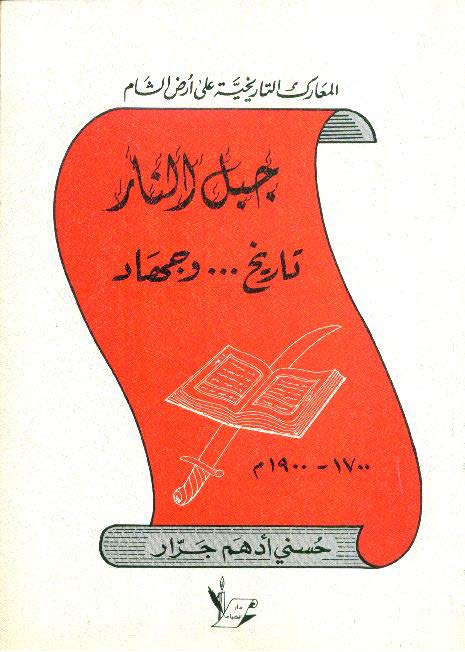 المعارك التاريخيَّة على أرض الشام
جبل النار
تاريخ ... وجهاد
١٧٠٠ - ١٩٠٠ م
حُسني أدهم جَرّار